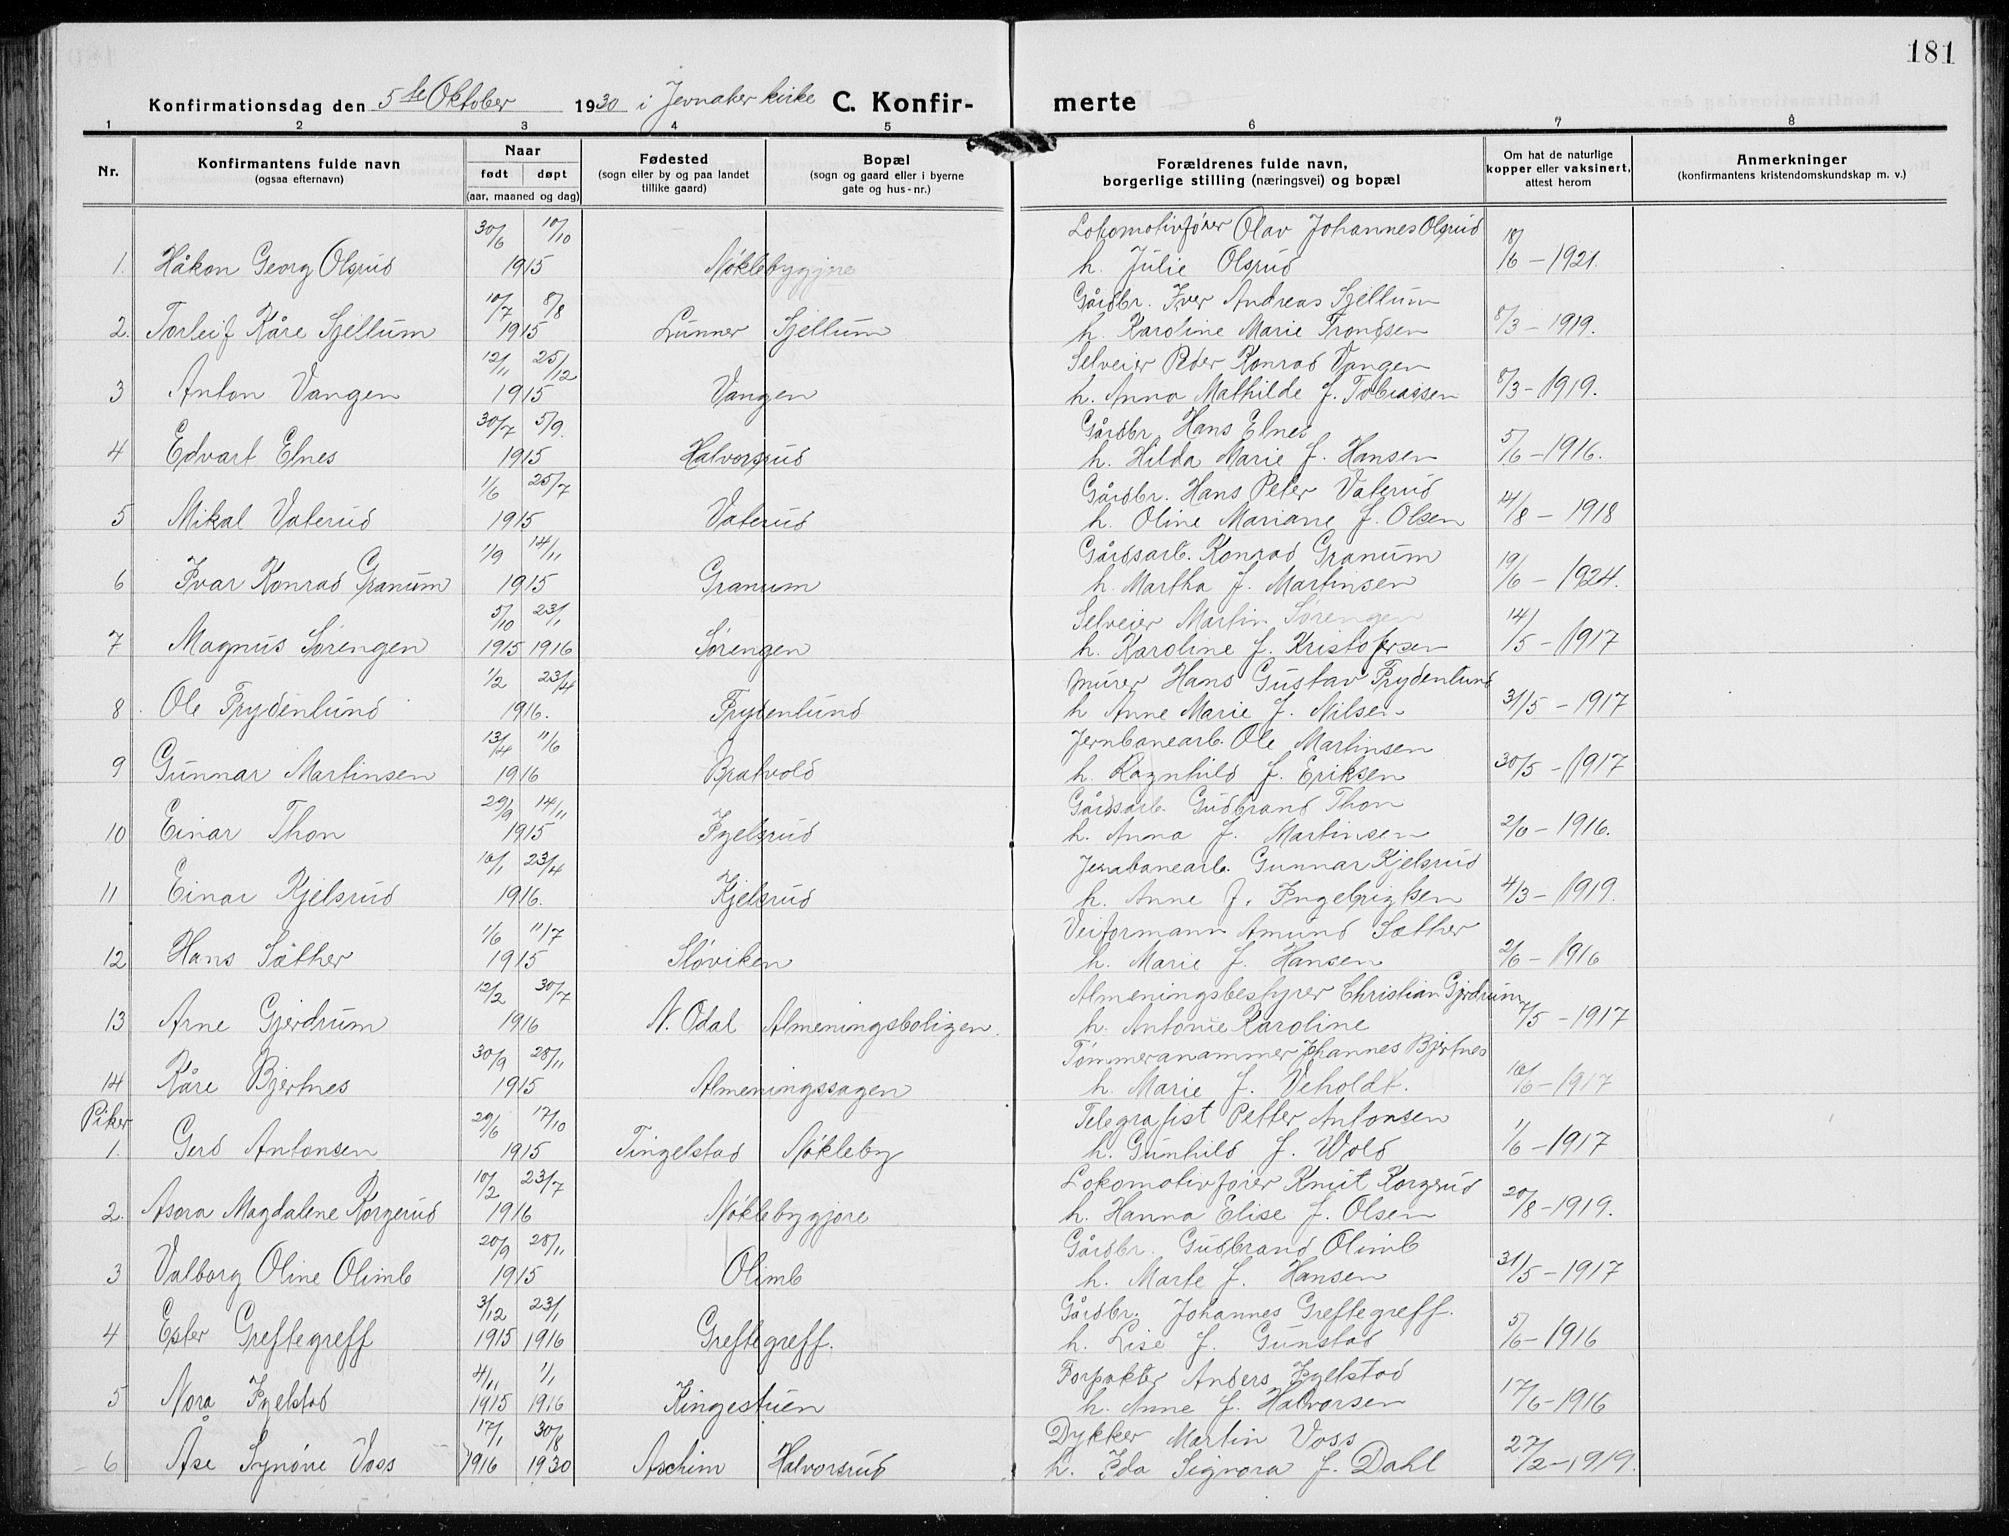 181
Konfirmationsdag den 5te Oktober 1930 i Jevnaker kirke C. Konfir- merte
1 2 3 4 5 6 7 8
Nr. Konfirmantens fulde navn (ogsaa efternavn) Naar født døpt (aar, maaned og dag) Fødested (sogn eller by og paa landet tillike gaard) Bopæl (sogn og gaard eller i byerne gate og hus-nr.) Forældrenes fulde navn, borgerlige stilling (næringsvei) og bopæl Om hat de naturlige kopper eller vaksinert, attest herom Anmerkninger (konfirmantens kristendomskundskap m. v.)
30/6 10/10 Lokomotivfører Olav Johannes Olsrud 18/
1. Håkon Georg Olsrud 1915 Nøklebygjore h. Julie Olsrud /6 - 1921.
10/7 8/8 Gårdbr. Iver Andreas Sjellum
2. Torleif Kåre Sjellum 1915 Lunner Sjellum h. Karoline Marie Trondsen 8/3 - 1919.
12/11 25/12 Selveier Peder Konrad Vangen
3 Anton Vangen 1915 Vangen h. Anna Mathilde f. Tobiassen 8/3 - 1919.
30/7 5/9. Gårdbr. Hans Elnes
4 Edvart Elnes 1915 Halvorsrud h. Hilda Marie f. Hansen 5/6 - 1916.
1/6 25/7 Gårdbr. Hans Peter Vaterud
5 Mikal Vaterud 1915 Vaterud h. Oline Mariane f. Olsen 14/8 - 1918
1/9 14/11 Gårdsarb. Konrad Granum
6 Ivar Konrad Granum 1915 Granum h. Martha f. Martinsen 19/6 - 1924.
5/10 23/1 Selveier Martin Sørengen
7 Magnus Sørengen 1915 1916 Sørengen h. Karoline f. Kristofersen 14/5 - 1917
1/2 23/4 Murer Hans Gustav Frydenlund
8 Ole Frydenlund 1916. Frydenlund h. Anne Marie f. Nilsen 31/5 - 1917
13/4 11/6 Jernbanearb. Ole Martinsen
9 Gunnar Martinsen 1916 Bratvold h. Ragnhild f. Eriksen 30/5 - 1917
29/9 14/11 Gårdsarb. Gudbrand Thon
10 Einar Thon 1915 Igelsrud h. Anna f. Martinsen 2/6 - 1916.
10/1 23/4 Jernbanearb. Gunnar Kjelsrud
11 Einar Kjelsrud 1916. Kjelsrud h. Anne f. Ingebrigtsen 4/3 - 1919.
1/6 11/7 Veiformann Amund Sæther
12 Hans Sæther 1915 Sløviken h. Marie f. Hansen 2/6 - 1916
12/2 30/7 Almeningsbestyrer Christian Gjerdrum
13 Arne Gjerdrum 1916 N. Odal Almeningsboligen. h. Antonie Karoline /5 - 1917
30/9 28/11 Tømmeranammer Johannes Bjertnes
14 Kåre Bjertnes 1915 Almeningssagen h. Marie f. Veholdt. 10/6 - 1917
Piker 29/6 17/10 Telegrafist Petter Antonsen
1. Gerd Antonsen 1915 Tingelstad Nøkleby h. Gunhild f. Wold 1/6 - 1917
10/2 23/7 Lokomotivfører Knut Korgerud
2. Asora Magdalene Korgerud 1916 Nøklebygjore h. Hanna Elise f. Olsen 20/8 - 1919.
20/9 28/11 Gårdbr. Gudbrand Olimb
3 Valborg Oline Olimb 1915 Olimb h. Marte f. Hansen 31/5 - 1917
3/12 23/1 Gårdbr. Johannes Greftegreff.
4 Ester Greftegreff 1915 1916 Greftegreff. h. Lise f. Gunstad 5/6 - 1916
4/11 1/1 Forpakter Anders Igelstad
5 Nora Igelstad 1915 1916 Kingestuen h. Anne f. Halvorsen 17/6 - 1916
17/1 30/8 Dykker Martin Voss
6 Åse Synøve Voss 1916 1930 Aschim Halvorsrud h. Ida Signora f. Dahl 27/2 - 1919.